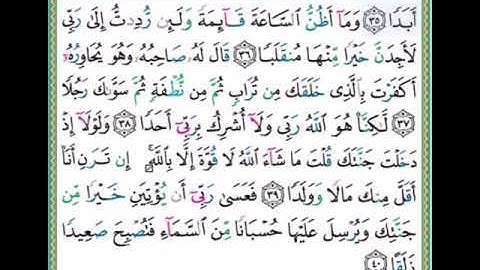 أَبَدًا ﴿٣٥﴾ وَمَآ أَظُنُّ ٱلسَّاعَةَ قَآئِمَةً وَلَئِن رُّدِدتُّ إِلَىٰ رَبِّى
لَأَجِدَنَّ خَيْرًا مِّنْهَا مُنقَلَبًا ﴿٣٦﴾ قَالَ لَهُۥ صَاحِبُهُۥ وَهُوَ يُحَاوِرُهُۥٓ
أَكَفَرْتَ بِٱلَّذِى خَلَقَكَ مِن تُرَابٍ ثُمَّ مِن نُّطْفَةٍ ثُمَّ سَوَّىٰكَ رَجُلًا
﴿٣٧﴾ لَّٰكِنَّا۠ هُوَ ٱللَّهُ رَبِّى وَلَآ أُشْرِكُ بِرَبِّىٓ أَحَدًا ﴿٣٨﴾ وَلَوْلَآ إِذْ
دَخَلْتَ جَنَّتَكَ قُلْتَ مَا شَآءَ ٱللَّهُ لَا قُوَّةَ إِلَّا بِٱللَّهِ ۚ إِن تَرَنِ أَنَا۠
أَقَلَّ مِنكَ مَالًا وَوَلَدًا ﴿٣٩﴾ فَعَسَىٰ رَبِّىٓ أَن يُؤْتِيَنِ خَيْرًا مِّن
جَنَّتِكَ وَيُرْسِلَ عَلَيْهَا حُسْبَانًا مِّنَ ٱلسَّمَآءِ فَتُصْبِحَ صَعِيدًا
زَلَقًا ﴿٤٠﴾